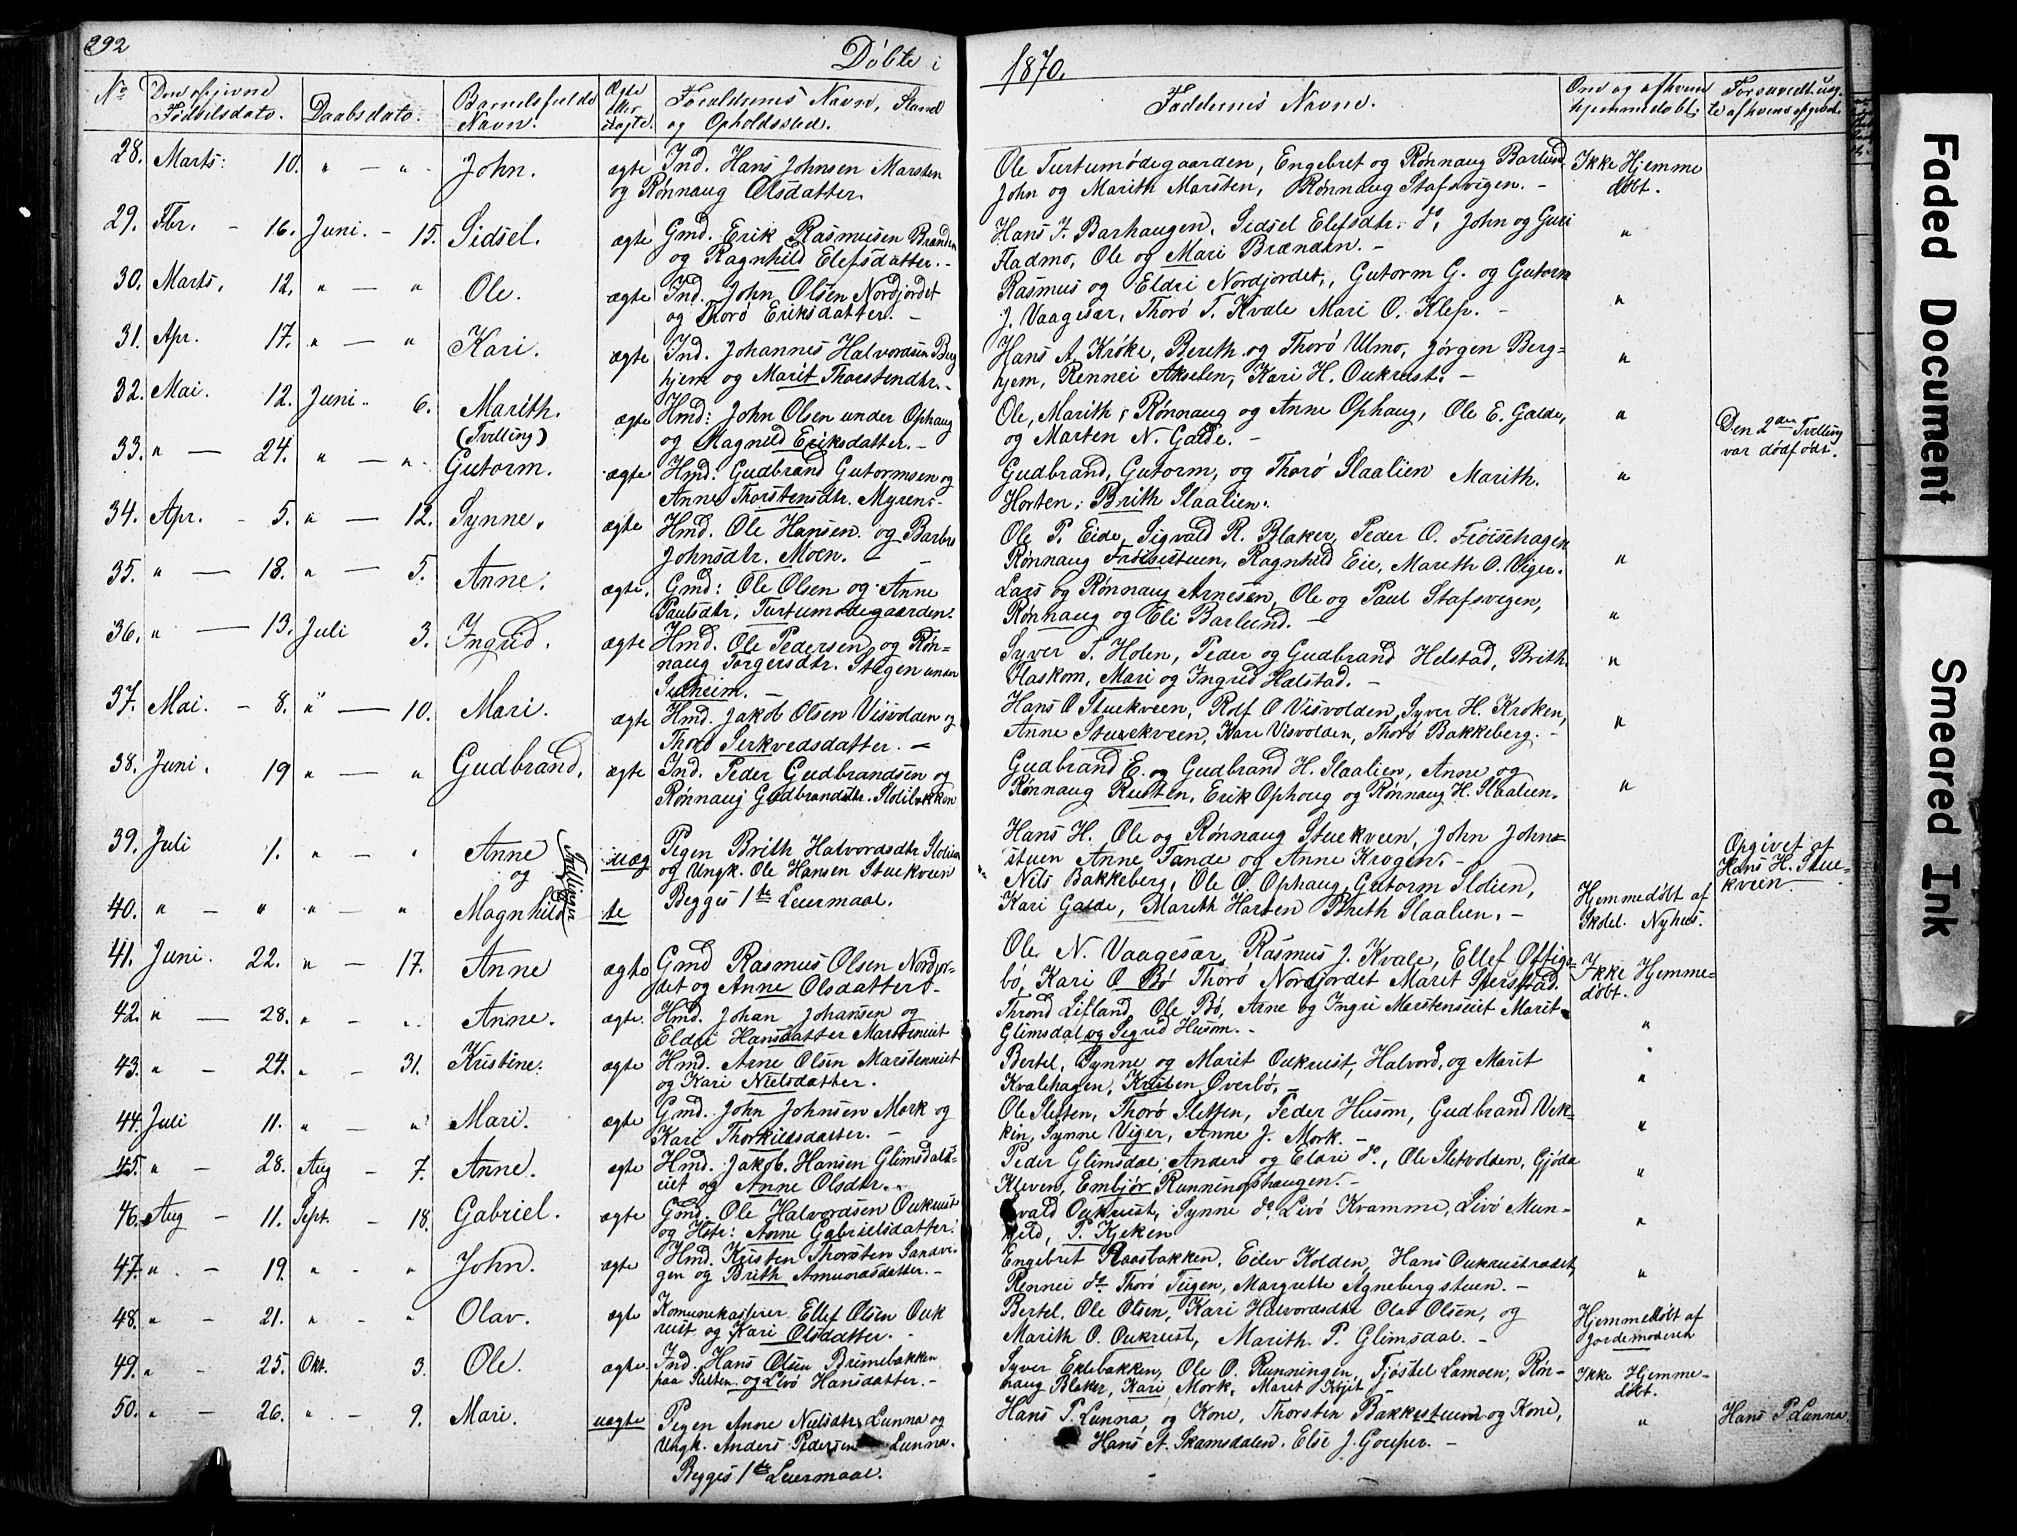 292
Døbte i 1870.
No Den opgivne Fødselsdato. Daabsdato. Barnets fulde Navn. Ægte eller uægte. Forældrenes Navn, Stand og Opholdssted. Faddernes Navne. Om og af hvem hjemmedøbt.
28. Marts: 10. " — " John. ægte Ind. Hans Johnsen Marsten Ole Turtumødegaarden, Engebret og Rønnaug Barlund Ikke Hjemme
og Rønnaug Olsdatter. John og Marith Marsten, Rønnaug Stafsvigen. — døbt.
29. Fbr. - 16. Juni. - 15. Sidsel. ægte Gmd. Erik Rasmusen Brænden Hans J. Barhaugen, Sidsel Elefsdtr. do, John og Guri "
og Ragnhild Elefsdatter. — Fladmo, Ole og Mari Brænden. —
30. Marts, 12. " — " Ole. ægte Ind. John Olsen Nordjordet Rasmus og Eldri Nordjordet, Gutorm G. og Gutorm "
og Thorø Eriksdatter. — J. Vaagesar, Thorø T. Kvale Mari O. Klep. —
31. Apr. 17. " — " Kari. ægte Ind. Johannes Halvordsen Berg Hans A. Krøke, Bereth og Thorø Ulmo, Jørgen Berg= "
hjem og Marit Thorstendtr. — hjem, Rennei Akselen, Kari H. Oukrust. —
32. Mai. 12. Juni - 6. Marith. ægte Hmd: John Olsen under Ophaug Ole, Marith, Rønnaug og Anne Ophaug, Ole E. Galde, " Den 2den Tvilling
(Tvilling) og Magnild Eriksdatter. — og Marten N. Galde. — var dødfødt.
33. " — 24. " — " Gutorm. ægte Hmd: Gudbrand Gutormsen og Gudbrand, Gutorm, og Thorø Slaalien Marith. "
Anne Thorstensdtr. Myren. Horten, Brith Slaalien.
34. Apr. - 5. " — 12. Synne. ægte Hmd. Ole Hansen og Barbro Ole P. Eide, Sigvald R. Blaker, Peder O. Frøisehagen
Johnsdtr. Moen. — Rønnaug Frøisestuen, Ragnhild Eie, Marith O. Viger. "
35. " — 18. " — 5. Anne. ægte. Gmd: Ole Olsen og Anne Lars og Rønnaug Arnesen, Ole og Paul Stafsvigen,
Paulsdtr, Turtumødegaarden. Rønnaug og Eli Barlund. — "
36. " — 13. Juli 3. Ingrid. ægte Hmd. Ole Pedersen og Røn= Syver S. Holen, Peder og Gudbrand Helstad, Brith "
naug Torgersdtr. Stegen under Flaskom, Mari og Ingrid Halstad. —
Sulheim. —
37. Mai. - 8. " — 10. Mari. ægte Hmd. Jakob Olsen Visvolden og Hans O Stuekveen, Rolf O Visvolden, Syver H. Kroken, "
Thorø Serkvedsdatter. — Anne Stuekveen, Kari Visvolden, Thorø Bakkeberg. —
38. Juni. 19 " — " Gudbrand. ægte Ind. Peder Gudbrandsen og Gudbrand E. og Gudbrand H. Slaalien, Anne og
Rønnaug Gudbrandsdtr. Rønnaug Rusten, Erik Ophoug og Rønnaug H. Slaalien. "
39. Juli 1. " — " Anne uæg Pigen Brith Halvordsdtr Hans H. Ole og Rønnaug Stuekveen, John John= Opgivet af
og Tvillinger og Ungk. Ole Hansen Stuekveen stuen Anne Tande og Anne Krogen. — Hans H. Stue-
40. " — " " — " Magnhild te Begges 1te Leiermaal. Nils Bakkeberg, Ole O. Ophaug, Gutorm Slalien, Hjemmedøbt af kveen
Kari Galde, Marith Harten Brith Slaalien. — Skolel. Nyhus.
41. Juni. 22. " — 17. Anne ægte Gmd Rasmus Olsen Nordjor- Ole N. Vaagesar, Rasmus J. Kvale, Ellef Øffige- Ikke Hjemme-
det og Anne Olsdatter. — bø, Kari O Bø Thorø Nordjordet Marit døbt.
42. " — 28. " - " Anne. ægte. Hmd. Johan Johansen og Thrond Lifland, Ole Bø, Arne og Ingri Marstenseiet Marit
Eldri Hansdatter Marsteneiet Glimsdal og Sigrid Husom. — "
43. " — 24. " - 31. Kristine. ægte Hmd. Arne Olsen Marsteneiet Bertel, Synne og Marit Oukrust, Halvord, og Marit
og Kari Nielsdatter. Kvalehagen, Kristen Øverbø. — "
44. Juli 11. " — " Mari. ægte Gmd. John Johnsen Mork og Ole Sletten, Thorø Sletten, Peder Husom, Gudbrand Vek= "
Kari Thorkildsdatter. — kin, Synne Viger, Anne J. Mork. —
45. " — 28. Aug - 7. Anne. ægte Hmd. Jakob Hansen Glimsdals= Peder Glimsdal, Anders og Eldri do, Ole Sletvolden, Gjøda "
eiet og Anne Olsdtr. Kleven, Embjør Runningshaugen. —
46. Aug - 11. Sept. - 18. Gabriel. ægte Gmd. Ole Halvordsen Oukrust Oukrust, Synne do. Livø Kvamme, Livø Mun= "
og Hstr: Anne Gabrielsdatter. P. Kjeken
47. " - 19. " - " John. ægte Hmd. Kristen Thorsten Sandvi= Engebret Raasbakken, Eilev Kolden, Hans Oukrustrædet,
gen og Brith Amundsdatter. — Rennei do. Thorø Teigen, Margrette Agnebergstuen. — "
48. " - 21. " - " Olav. ægte Komunekasserer Ellef Olsen Ouk Bertel, Ole Olsen, Kari Halvordsdtr Olav Olsen, og Hjemmedøbt af
rust og Kari Olsdatter. — Marith O. Oukrust, Marith P. Glimsdal. — Jordemoderen
49. " - 25. Okt. 3. Ole. ægte. Ind. Hans Olsen Brimebakken Syver Eklebakken, Ole O. Runningen, Tjøstel Lamoen, Røn- Ikke Hjemme-
paa Sletten og Livø Hansdatter. — naug Blaker, Kari Mork, Marit døbt.
50. " - 26. " - 9. Mari. uægte Pigen Anne Nielsdtr. Lunna og Hans P. Lunna og Kone, Thorsten Bakkestuen og Kone, " Hans P Lunna.
Ungk. Anders Pedersen Lunna. Hans A. Skamsdalen, Else J. —
Begges 1te Leiermaal.
Faded Document
Smeared Ink